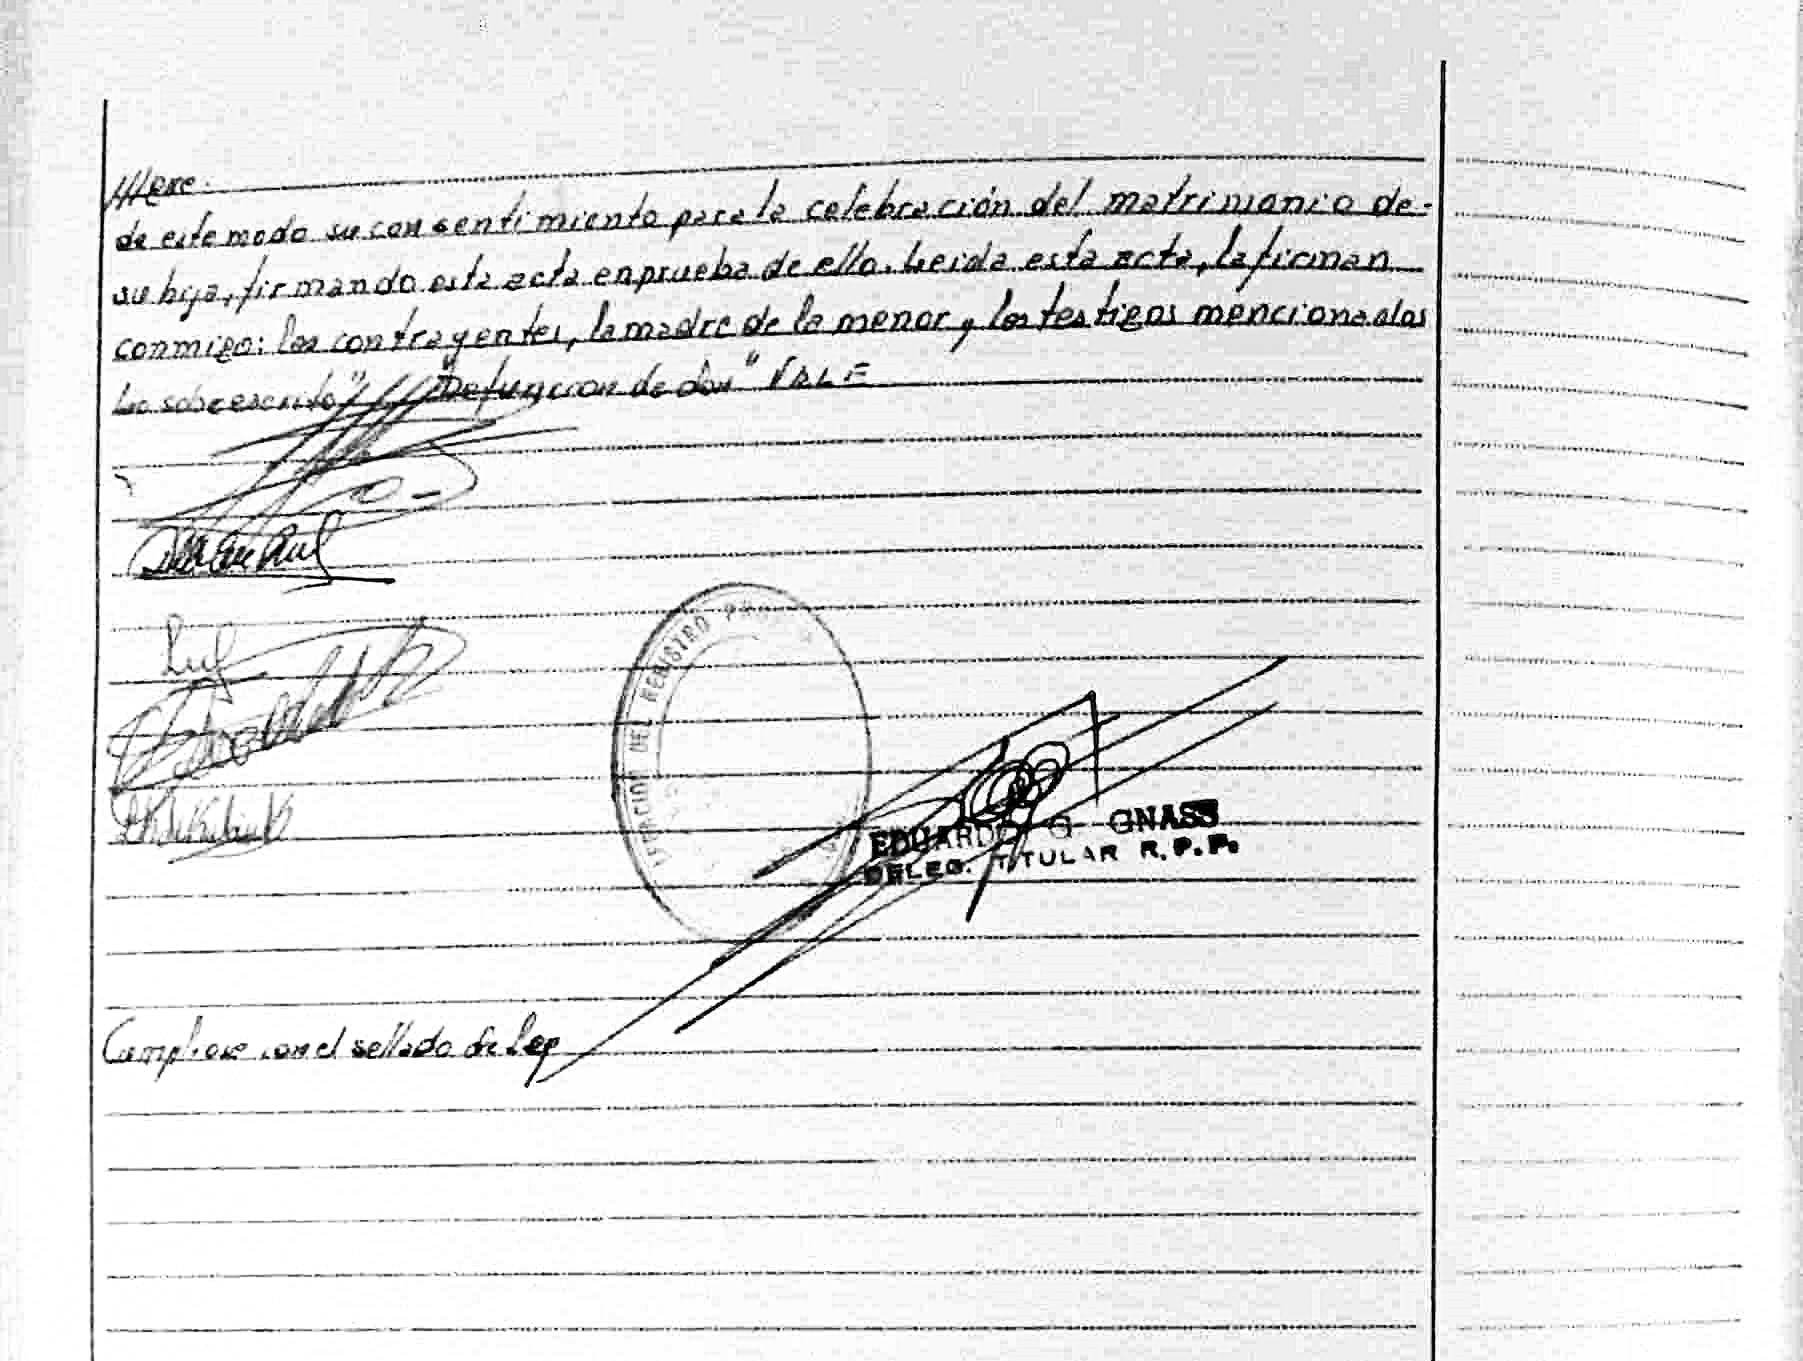 ///ore.
de este modo su consentimiento para la celebración del matrimonio de-
su hija, firmando esta acta en prueba de ello. Leida esta acta, la firman
conmigo: los contrayentes, la madre de la menor y los testigos mencionados
Lo sobreescrito "Defuncion de don" VALE
DEL REGISTRO
EDUARDO G. GNASS
DELEG. TITULAR R.P.P.
Cumplese con el sellado de Ley